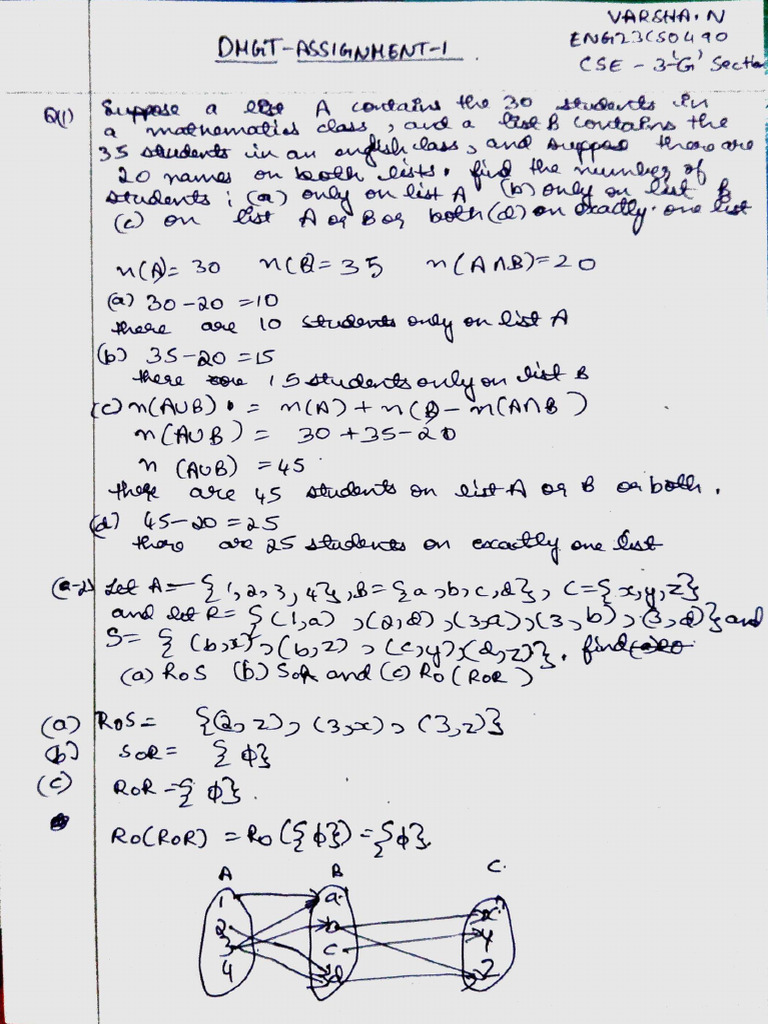 VARSHA.N
ENG23CS0490
CSE - 3 'G' Section
DMGT-ASSIGNMENT-1
Q1) Suppose a list A contains the 30 students in
a mathematics class, and a list B contains the
35 students in an english class, and suppose there are
20 names on both lists. find the number of
students : (a) only on list A (b) only on list B
(c) on list A or B or both (d) on exactly one list
n(A)= 30 n(B)= 35 n(A∩B)=20
(a) 30-20 =10
there are 10 students only on list A
(b) 35-20 =15
there are 15 students only on list B
(c) n(A∪B) = n(A) + n(B - n(A∩B)
n(A∪B) = 30 +35-20
n (A∪B) = 45
there are 45 students on list A or B or both.
(d) 45-20 =25
there are 25 students on exactly one list
(Q-2) Let A= {1,2,3,4}, B={a,b,c,d}, C={x,y,z}
and let R= {(1,a),(2,d),(3,a),(3,b),(3,d)} and
S= {(b,x),(b,z),(c,y),(d,z)}. find
(a) RoS (b) SoR and (c) Ro(RoR)
(a) RoS= {(2,z), (3,x), (3,z)}
(b) SoR= {ϕ}
(c) RoR ={ϕ}.
Ro(RoR) = Ro({ϕ}) ={ϕ}.
A B C.
1 a x
2 b y
3 c z
4 d